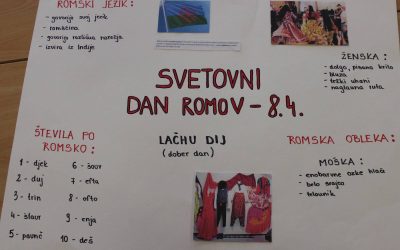 ROMSKI JEZIK:
- govorijo svoj jezik
- romščina
- govorijo različna narečja
- izvira iz Indije
ŽENSKA:
- dolga, pisana krila
- bluza
- težki uhani
- naglavna ruta
SVETOVNI
DAN ROMOV - 8.4.
ŠTEVILA PO
ROMSKO:
1 - djek
2 - duj
3 - trin
4 - štaur
5 - paunč
6 - šouv
7 - efta
8 - ofto
9 - enja
10 - deš
LAČHU DIJ
(dober dan)
ROMSKA OBLEKA:
MOŠKA:
- enobarvne ozke hlače
- bela srajca
- telovnik